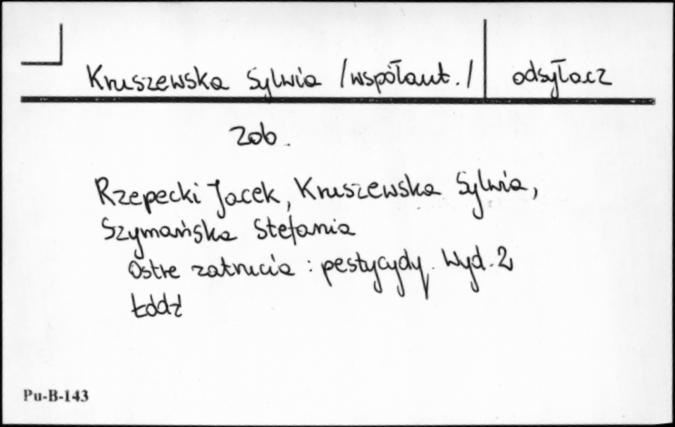 Kruszewska Sylwia /współaut./ odsyłacz
Zob.
Rzepecki Jacek, Kruszewska Sylwia,
Szymańska Stefania
Ostre zatrucia : pestycydy. Wyd. 2
Łódź
Pu-B-143